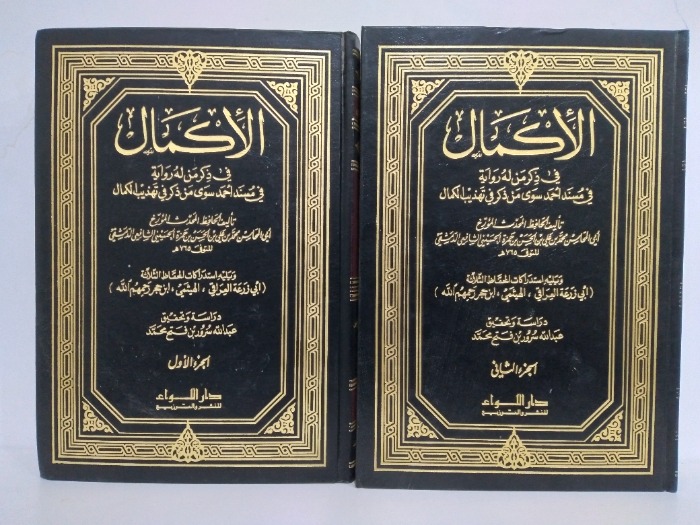 الإكمال
في ذكر من له رواية
في مسند أحمد سوى من ذكر في تهذيب الكمال
تأليف الحافظ المحدث المؤرخ
أبي المحاسن محمد بن علي بن الحسن بن حمزة الحسيني الشافعي الدمشقي
المتوفى ٧٦٥هـ
ويليه استدراكات الحفاظ الثلاثة
(أبي زرعة العراقي ، الهيثمي ، ابن حجر رحمهم الله)
دراسة وتحقيق
عبدالله سرور بن فتح محمد
الجزء الأول
دار اللواء
للنشر والتوزيع
الإكمال
في ذكر من له رواية
في مسند أحمد سوى من ذكر في تهذيب الكمال
تأليف الحافظ المحدث المؤرخ
أبي المحاسن محمد بن علي بن الحسن بن حمزة الحسيني الشافعي الدمشقي
المتوفى ٧٦٥هـ
ويليه استدراكات الحفاظ الثلاثة
(أبي زرعة العراقي ، الهيثمي ، ابن حجر رحمهم الله)
دراسة وتحقيق
عبدالله سرور بن فتح محمد
الجزء الثاني
دار اللواء
للنشر والتوزيع